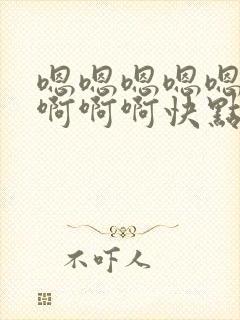 嗯嗯嗯嗯嗯
啊啊啊快點
不吓人